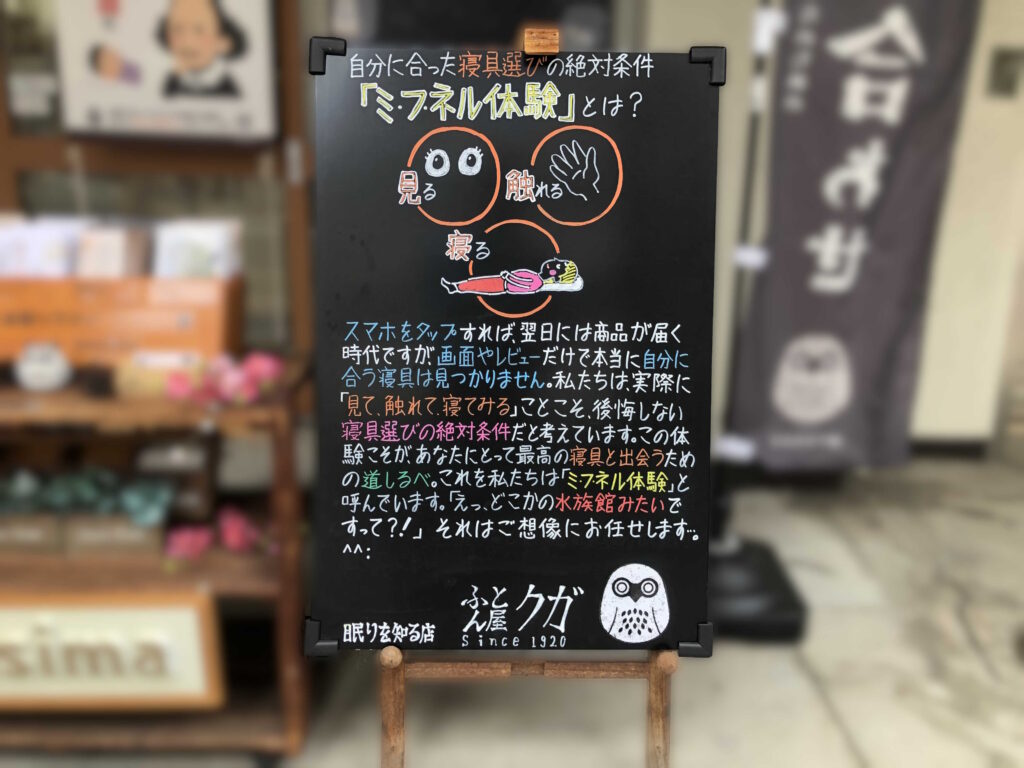 自分に合った寝具選びの絶対条件
「ミ・フネル体験」とは?
見る
触れる
寝る
スマホをタップすれば、翌日には商品が届く
時代ですが画面やレビューだけで本当に自分に
合う寝具は見つかりません。私たちは実際に
「見て、触れて、寝てみる」ことこそ、後悔しない
寝具選びの絶対条件だと考えています。この体
験こそがあなたにとって最高の寝具と出会うため
の道しるべ。これを私たちは「ミフネル体験」と
呼んでいます。「えっ、どこかの水族館みたいで
すって?!」それはご想像にお任せします…。
^^;
眠りを知る店
ふとん屋クガ
Since 1920
合わせ
sima